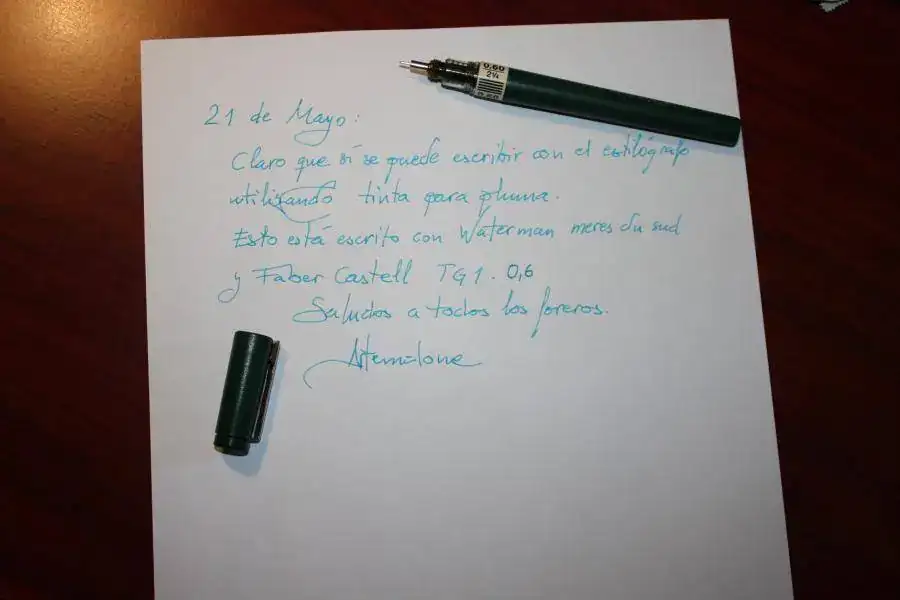 0.60
2¼
21 de Mayo:
Claro que sí se puede escribir con el estilógrafo
utilizando tinta para pluma.
Esto está escrito con Waterman meres du sud
y Faber Castell TG1. 0,6
Saludos a todos los foreros.